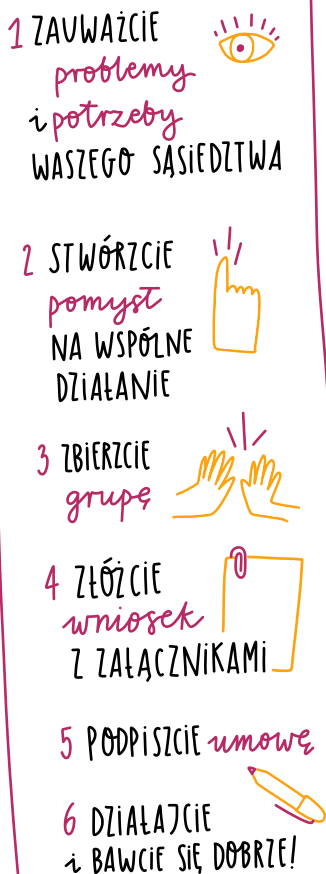 1 ZAUWAŻCIE
problemy
i potrzeby
WASZEGO SĄSIEDZTWA
2 STWÓRZCIE
pomysł
NA WSPÓLNE
DZIAŁANIE
3 ZBIERZCIE
grupę
4 ZŁÓŻCIE
wniosek
Z ZAŁĄCZNIKAMI
5 PODPISZCIE umowę
6 DZIAŁAJCIE
i BAWCIE SIĘ DOBRZE!